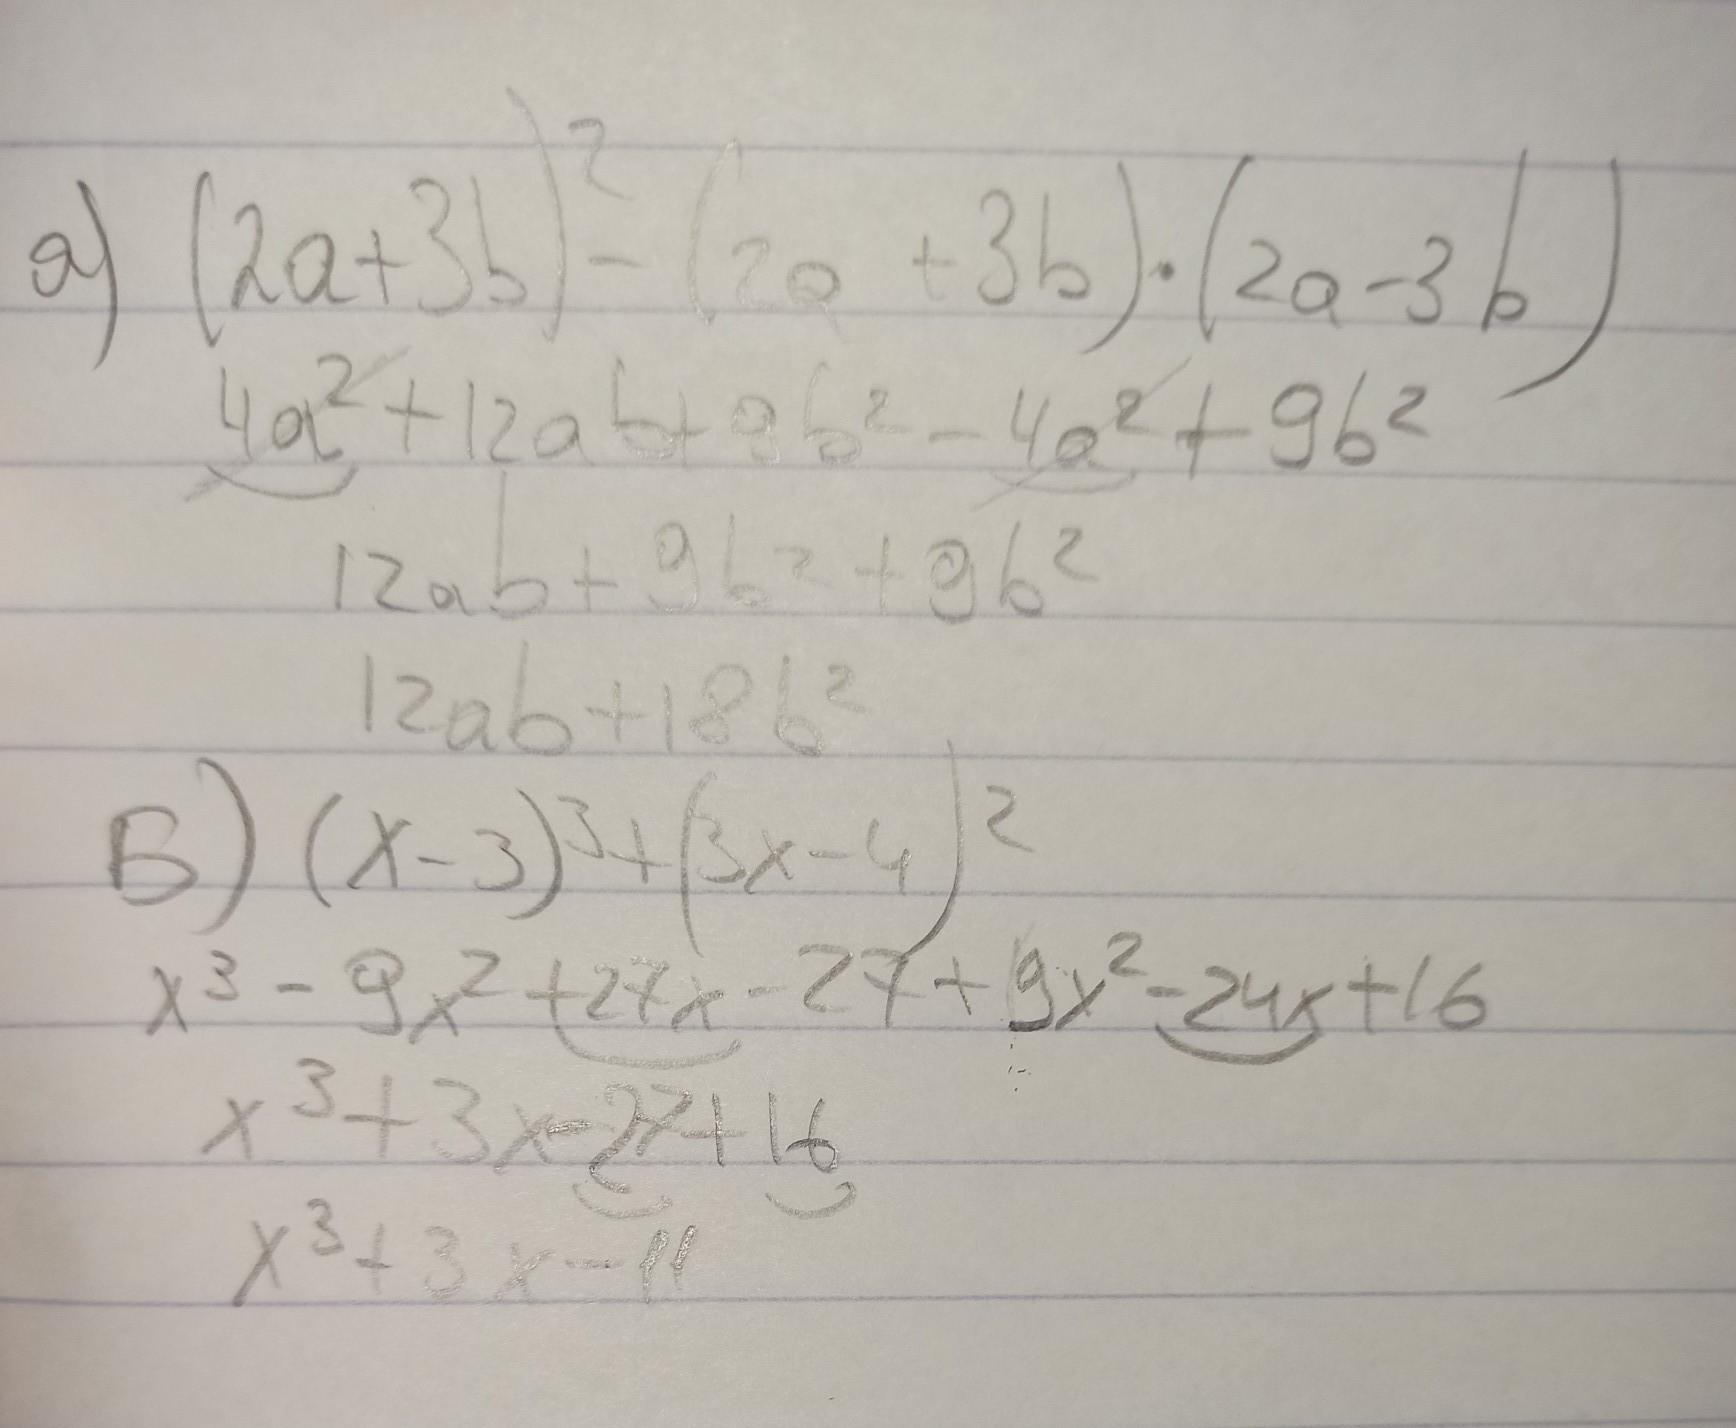 а) (2a+3b)² - (2a +3b)·(2a-3b)
4a² + 12ab + 9b² - 4a² + 9b²
12ab + 9b² + 9b²
12ab + 18b²
Б) (x-3)³ + (3x-4)²
x³ - 9x² + 27x - 27 + 9x² - 24x + 16
x³ + 3x - 27 + 16
x³ + 3x - 11